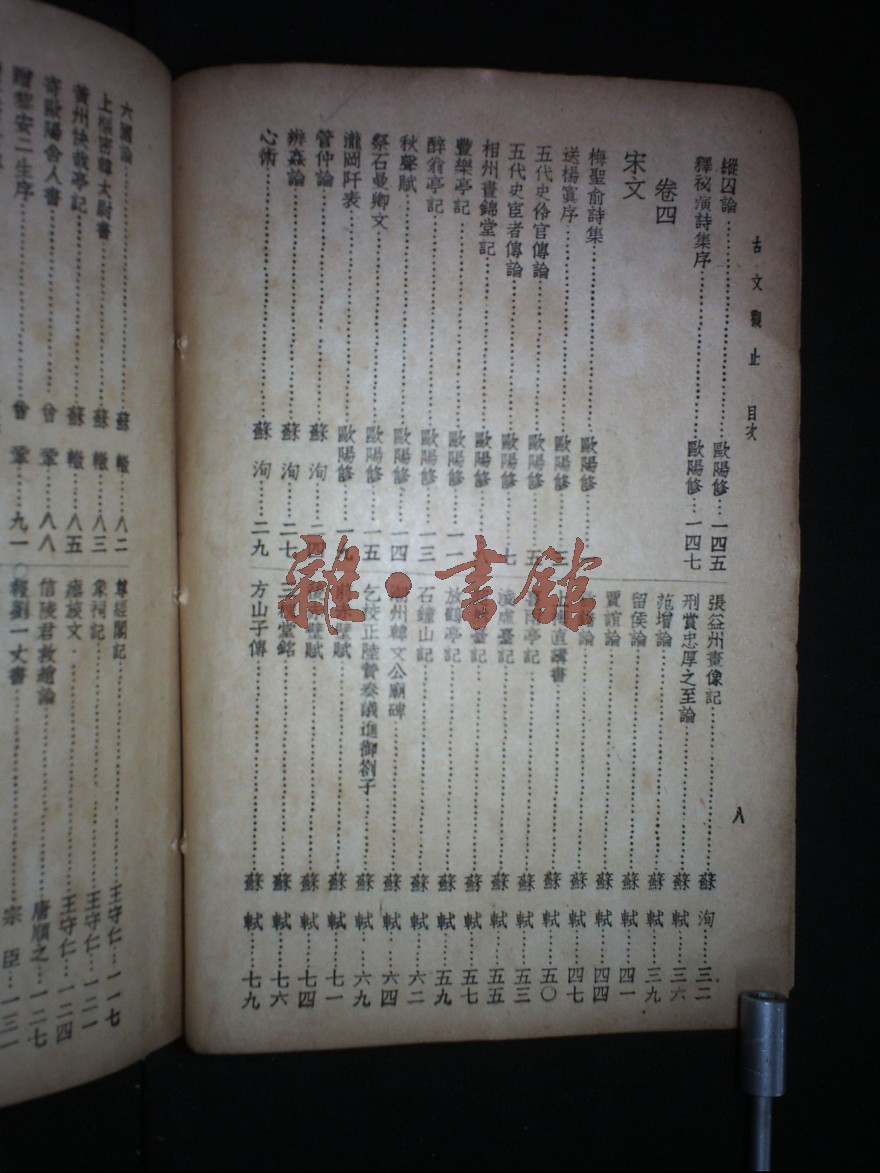 古文觀止 目次 八
縱囚論……歐陽修…一四五
釋祕演詩集序……歐陽修…一四七
卷四
宋文
梅聖俞詩集……歐陽修…一
送楊寘序……歐陽修…三
五代史伶官傳論……歐陽修…五
五代史宦者傳論……歐陽修…七
相州畫錦堂記……歐陽修
豐樂亭記……歐陽修…一一
醉翁亭記……歐陽修…一三
秋聲賦……歐陽修…一四
祭石曼卿文……歐陽修…一五
瀧岡阡表……歐陽修…一九
管仲論……蘇洵…二四
辨姦論……蘇洵…二七
心術……蘇洵…二九
張益州畫像記……蘇洵…三二
刑賞忠厚之至論……蘇軾…三六
范增論……蘇軾…三九
留侯論……蘇軾…四一
賈誼論……蘇軾…四四
論……蘇軾…四七
直講書……蘇軾…五〇
雨亭記……蘇軾…五三
虛臺記……蘇軾…五五
臺記……蘇軾…五七
放鶴亭記……蘇軾…五九
石鐘山記……蘇軾…六二
潮州韓文公廟碑……蘇軾…六四
乞校正陸贄奏議進御劄子……蘇軾…六九
前赤壁賦……蘇軾…七一
赤壁賦……蘇軾…七四
三槐堂銘……蘇軾…七六
方山子傳……蘇軾…七九
六國論……蘇轍…八二
上樞密韓太尉書……蘇轍…八三
黃州快哉亭記……蘇轍…八五
寄歐陽舍人書……曾鞏…八八
贈黎安二生序……曾鞏…九一
尊經閣記……王守仁…一一七
象祠記……王守仁…一二一
瘞旅文……王守仁…一二四
信陵君救趙論……唐順之…一二七
報劉一丈書……宗臣…一三一
雜·書館